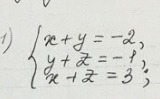 1) { x + y = -2,
y + z = -1,
x + z = 3 ;